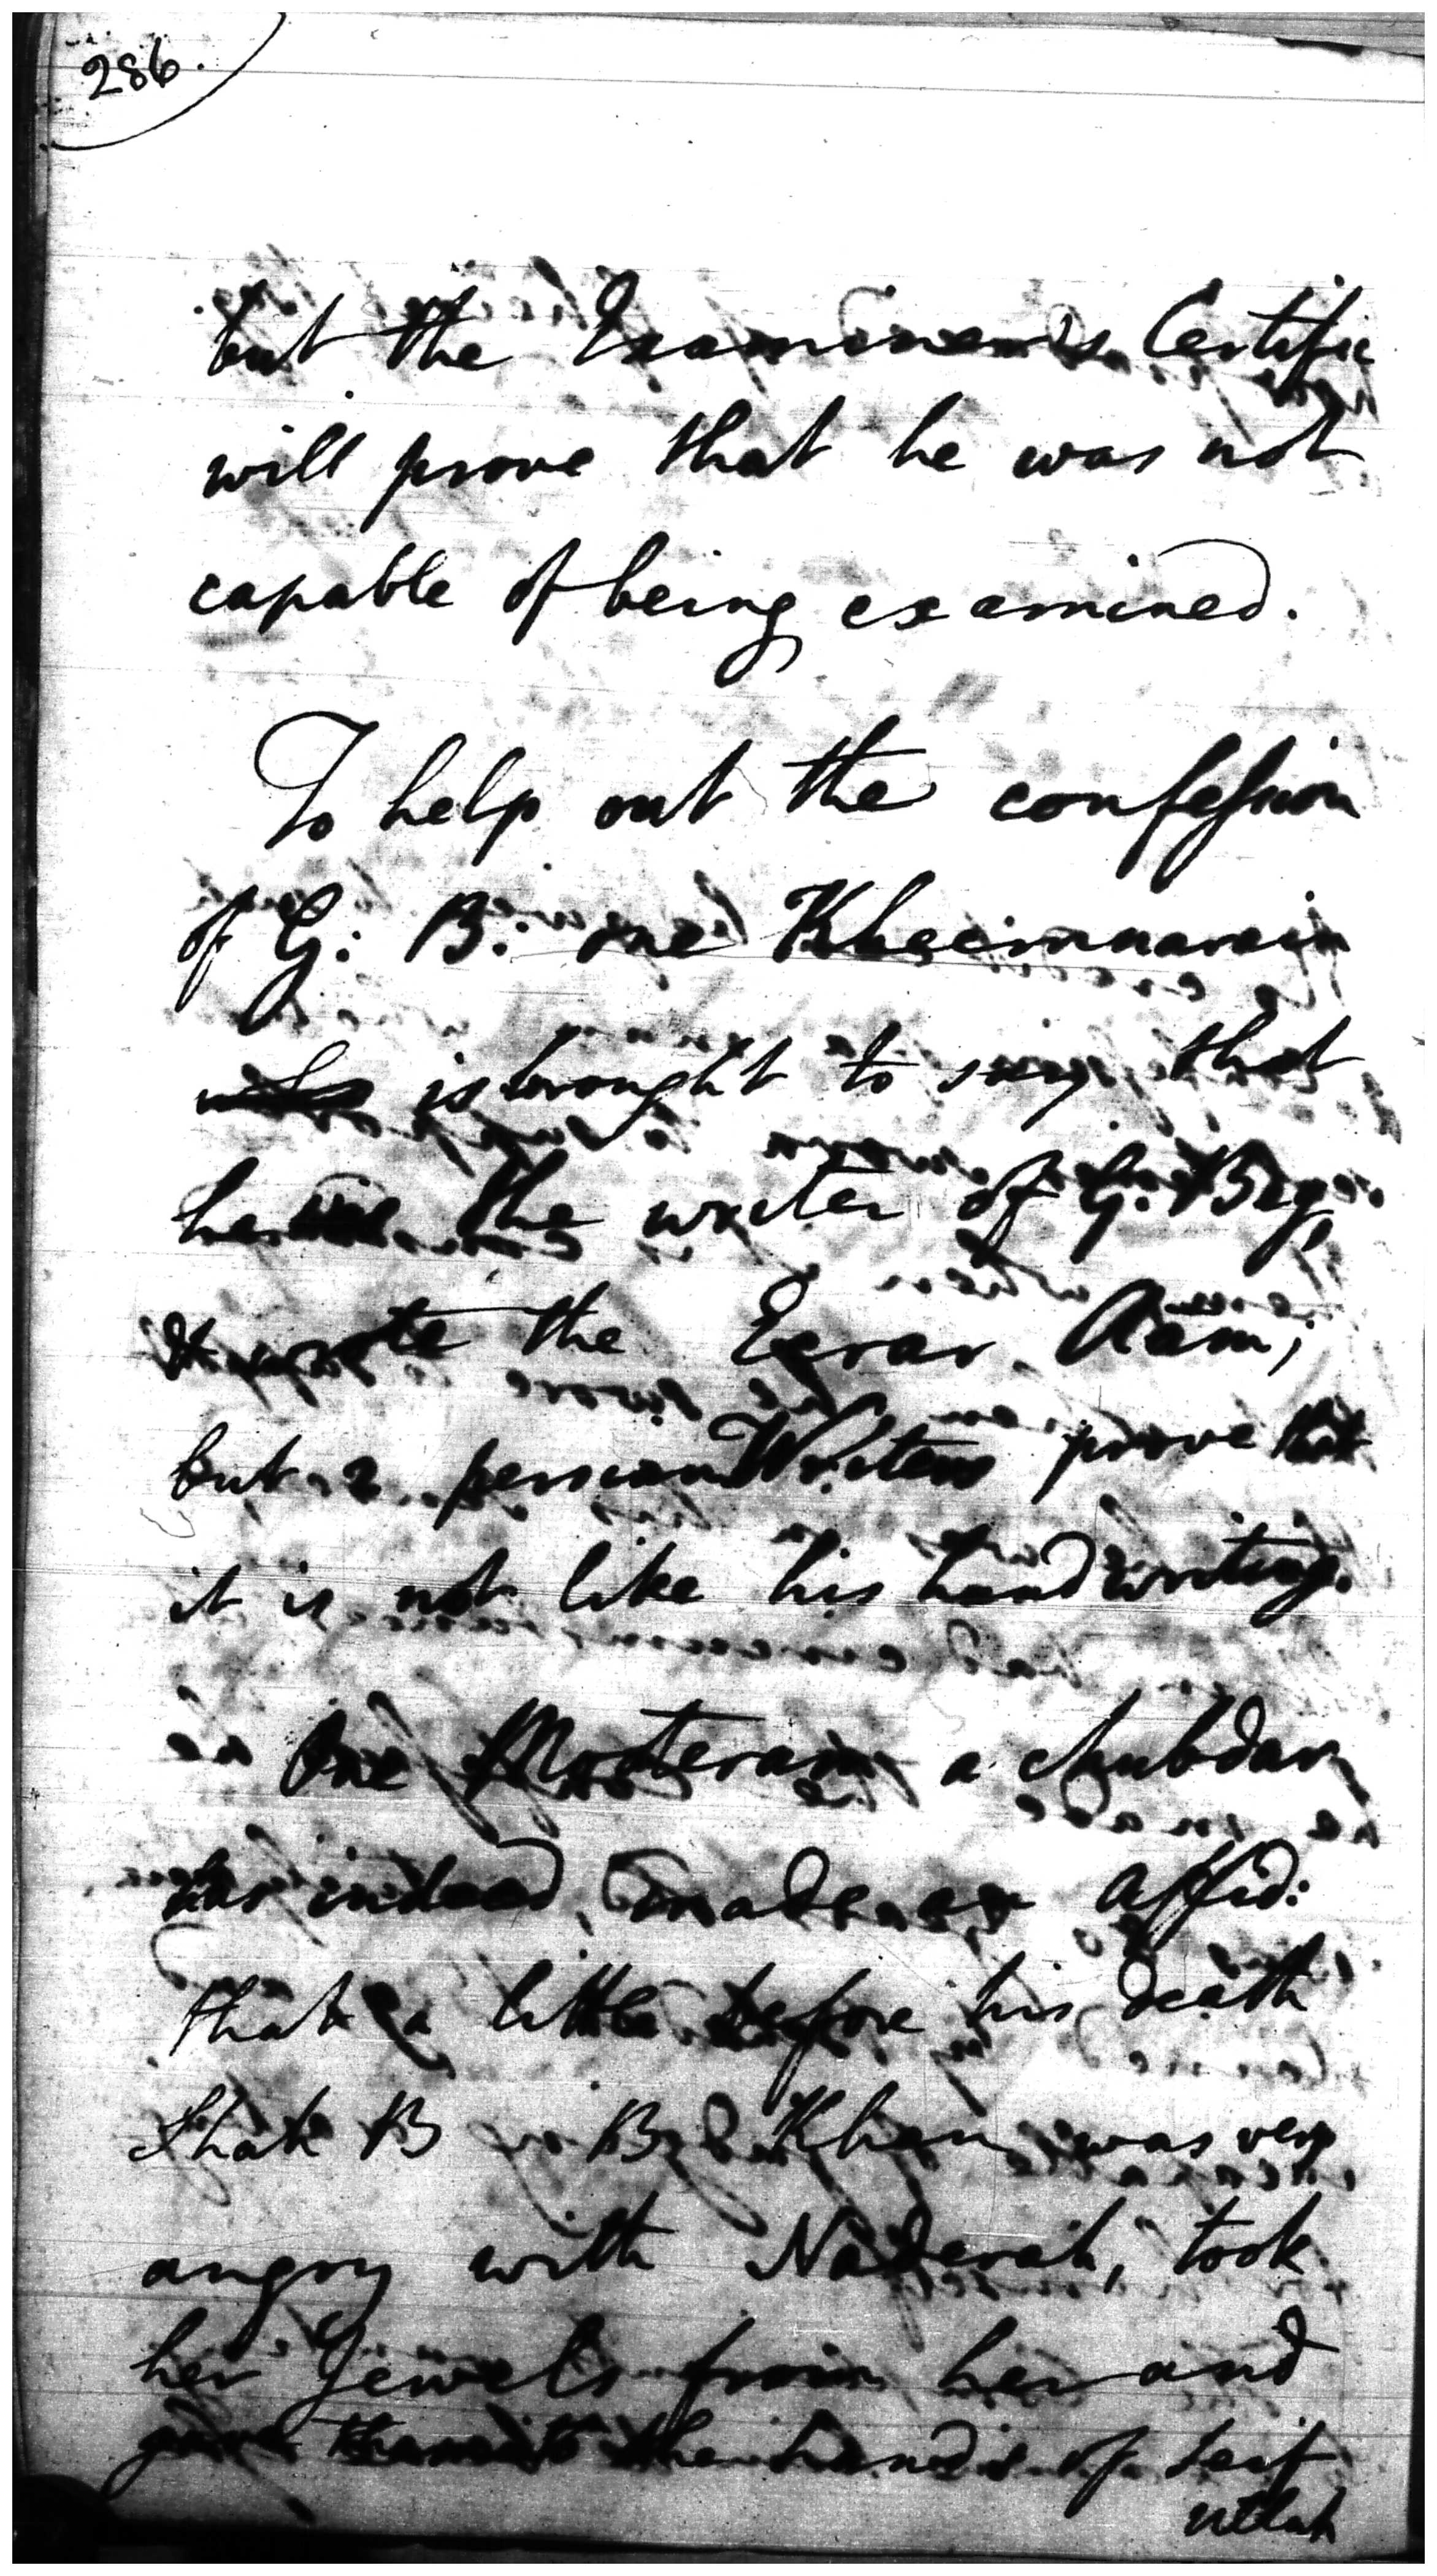 286.
but the Examiner's Certific
will prove that he was not
capable of being examined.
To help out the confession
of G: B: one Kheemnarain
is brought to say that
he the writer of G. Beg,
& wrote the Ecrar Aam;
but 2 persian Writers prove that
it is not like his hand writing.
One Moteram a chubdar
has indeed, made an Affid:
that a little before his death
Shah B Beg Khan was very
angry with Naderah, took
her Jewels from her and
gave them into the hands of
utlah